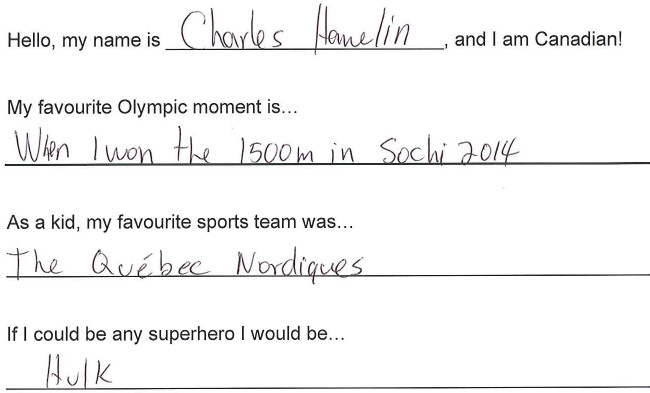 Hello, my name is Charles Hamelin, and I am Canadian!
My favourite Olympic moment is...
When I won the 1500m in Sochi 2014
As a kid, my favourite sports team was...
The Québec Nordiques
If I could be any superhero I would be...
Hulk